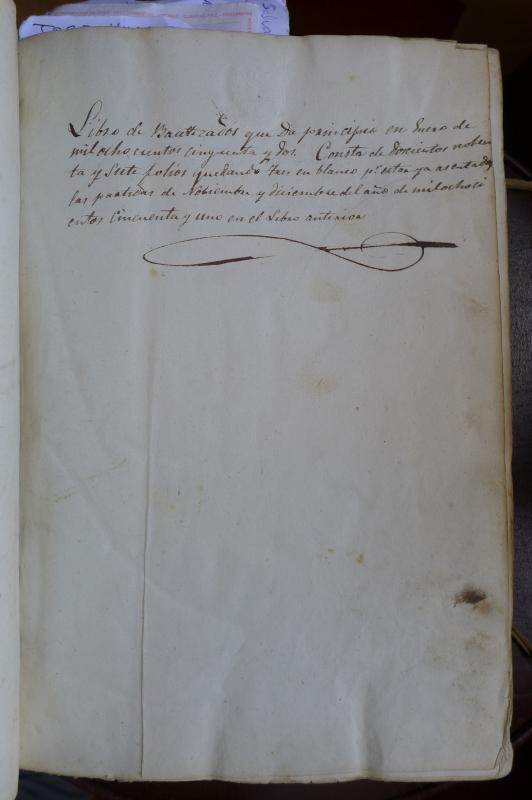 Libro de Bautizados que da principia en Enero de
mil ochocientos cinquenta y dos. Consta de dosientos noben
ta y siete folios quedando tres en blanco pr. estar ya asentadas
las partidas de Nobiembre y diciembre del año de mil ochoci
entos Cincuenta y uno en el Libro anterior